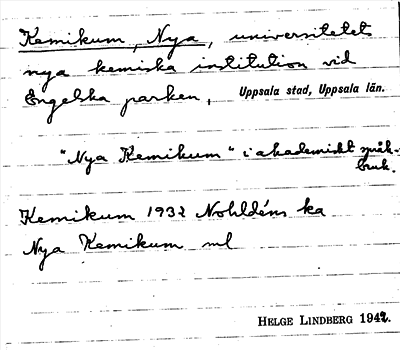 Kemikum, Nya, universitetets
nya kemiska institution vid
Engelska parken, Uppsala stad, Uppsala län.
"Nya Kemikum" i akademiskt språk-
bruk.
Kemikum 1932 Nohldéns ka
Nya Kemikum ml
HELGE LINDBERG 1942.